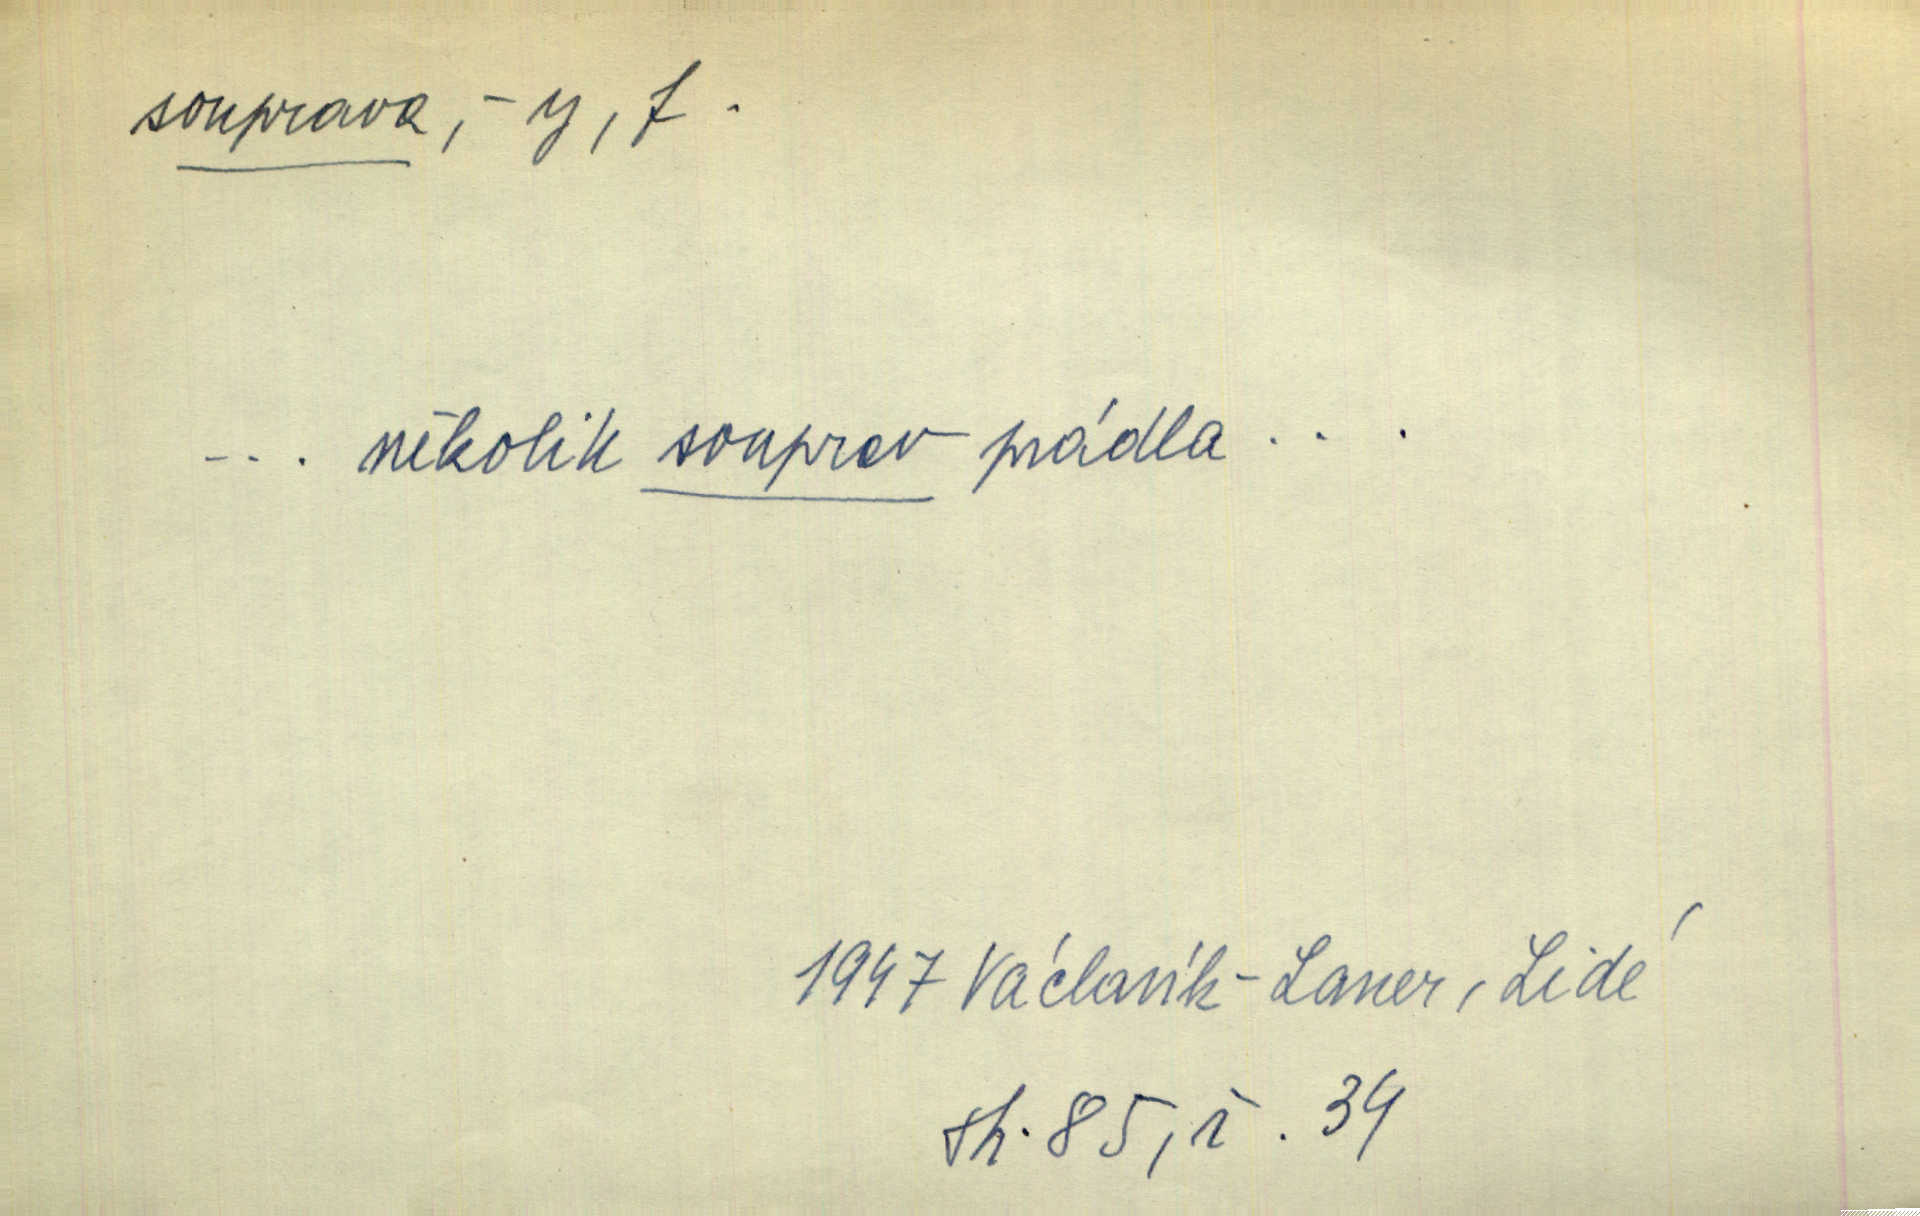 souprava, -y, f.
... několik souprav prádla ...
1947 Václavík - Laner, Lidé
str. 85, ř. 34